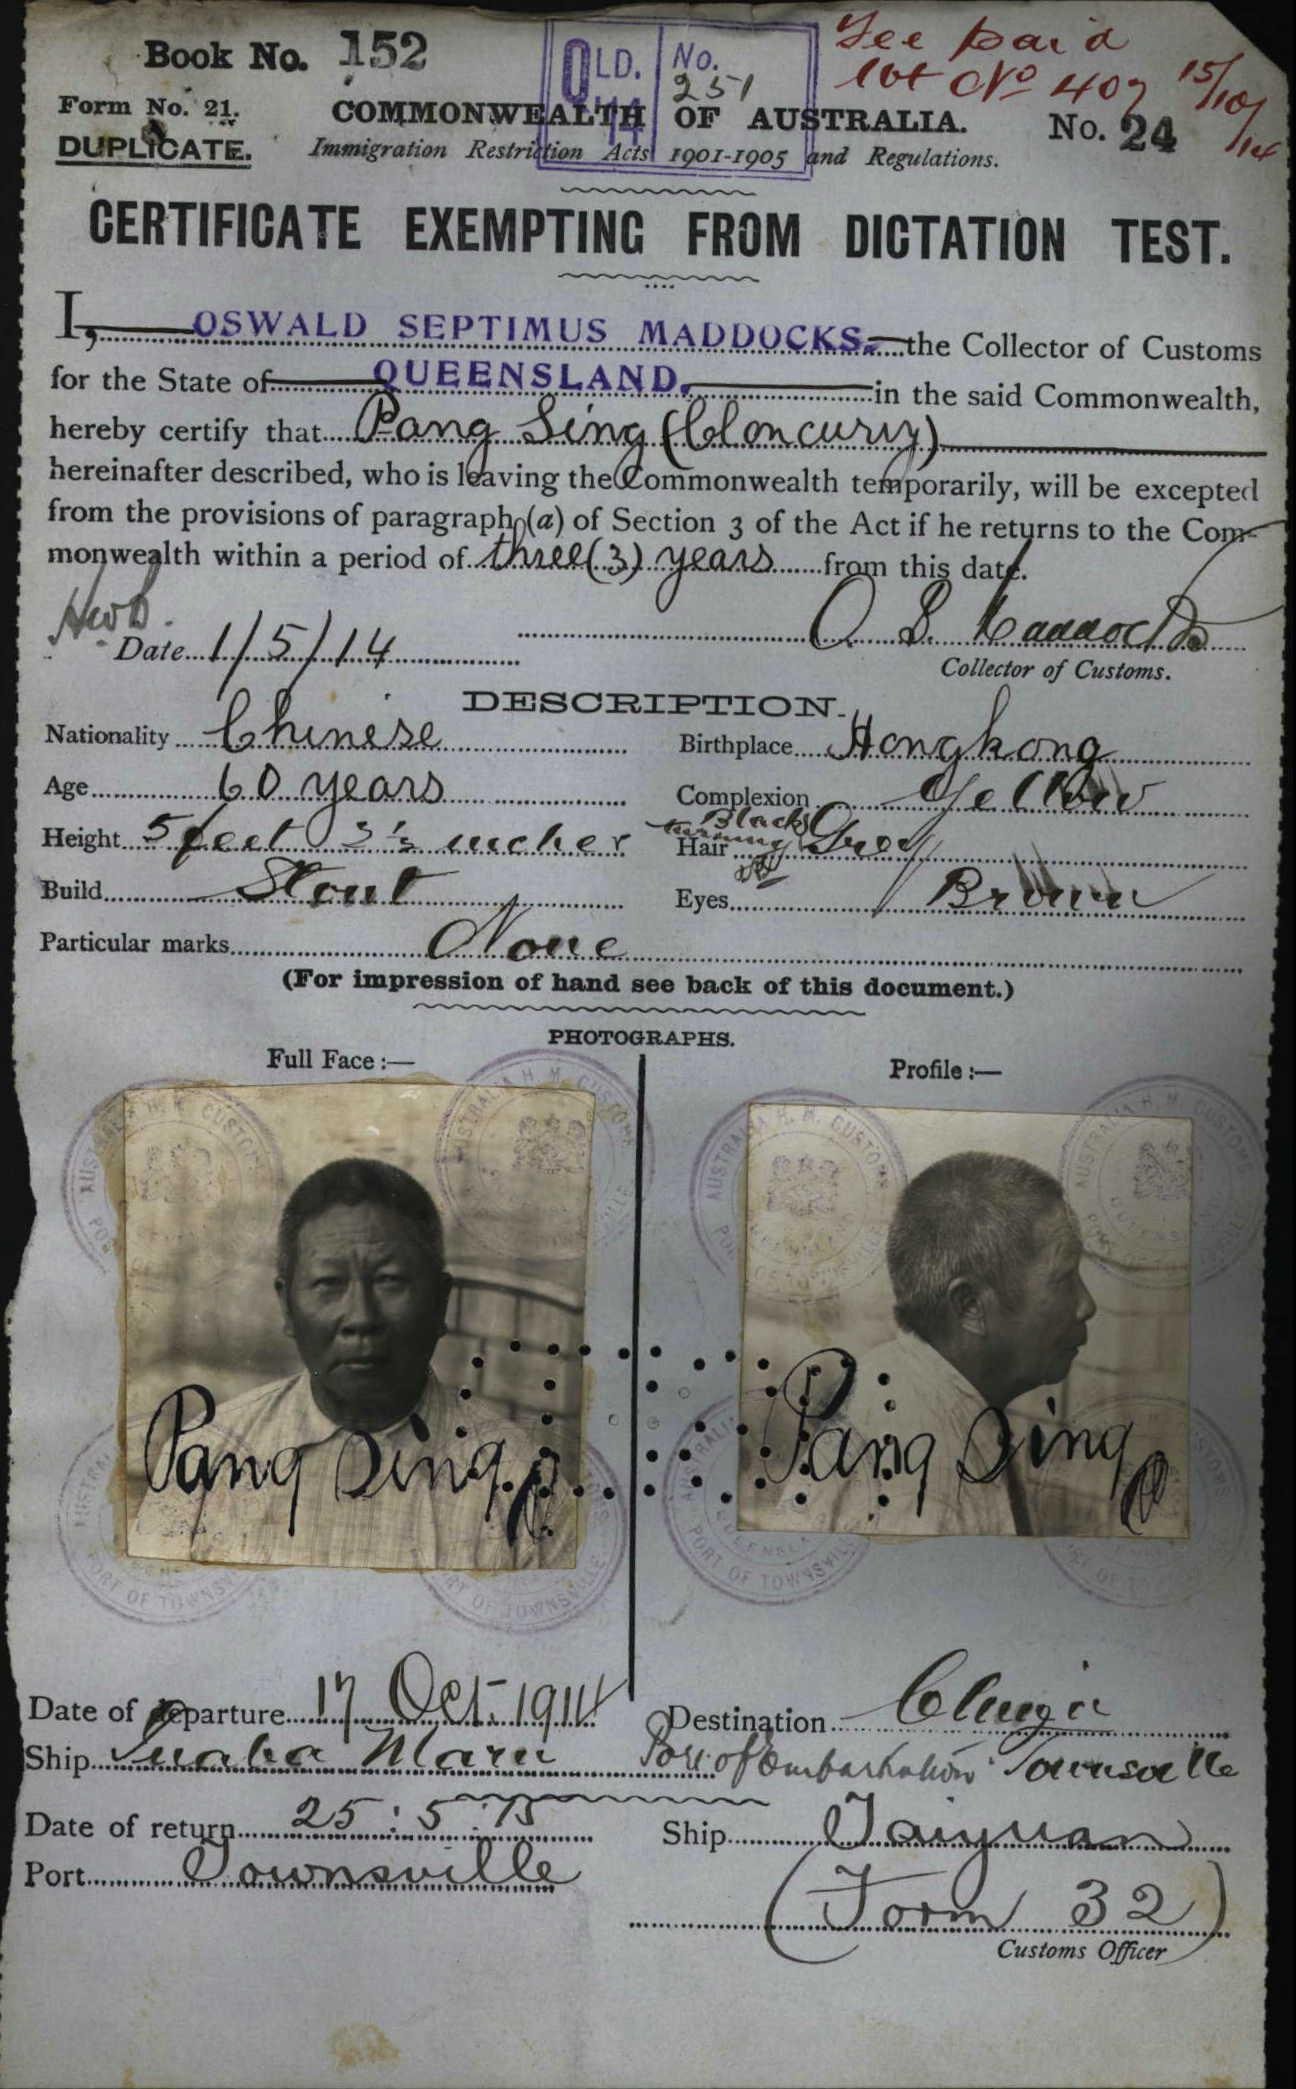 Book No. 152
OLD. No.
'14 251
Fee paid
No 407 15/10/14
Form No. 21.
COMMONWEALTH OF AUSTRALIA.
No. 24
DUPLICATE.
Immigration Restriction Acts 1901-1905 and Regulations.
CERTIFICATE EXEMPTING FROM DICTATION TEST.
I, OSWALD SEPTIMUS MADDOCKS. the Collector of Customs
for the State of QUEENSLAND, in the said Commonwealth,
hereby certify that Pang Sing (Cloncurry)
hereinafter described, who is leaving the Commonwealth temporarily, will be excepted
from the provisions of paragraph (a) of Section 3 of the Act if he returns to the Com-
monwealth within a period of three (3) years from this date.
Date 1/5/14
O. S. Maddocks
Collector of Customs.
DESCRIPTION.
Nationality Chinese
Birthplace Hongkong
Age 60 years
Complexion Yellow
Height 5 feet 3½ inches
Black turning
Hair Grey
Build Stout
Eyes Brown
Particular marks None
(For impression of hand see back of this document.)
PHOTOGRAPHS.
Full Face :—
Profile :—
AUSTRALIA H. M. CUSTOMS
QUEENSLAND
PORT OF TOWNSVILLE
Pang Sing
Pang Sing
Date of departure 17 Oct. 1914
Destination China
Ship Inaba Maru
Port of Embarkation Townsville
Date of return 25 : 5 : 15
Ship Taiyuan
Port Townsville
(Form 32)
Customs Officer